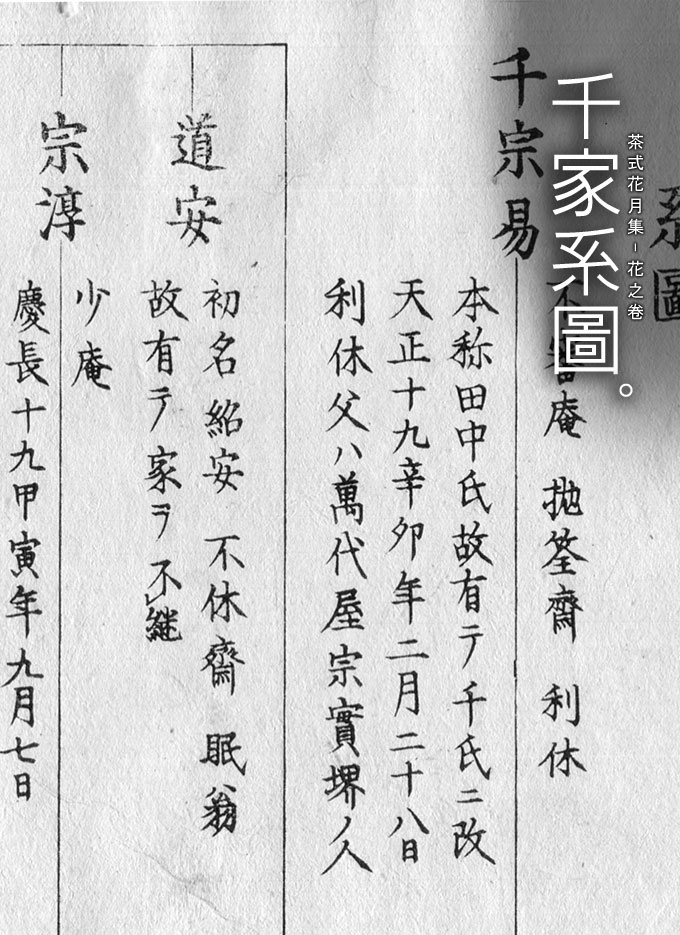 千家系圖。
茶式花月集-花之巻
系圖
千宗易
不審庵 抛筌齋 利休
本称田中氏故有テ千氏ニ改
天正十九辛卯年二月二十八日
利休父ハ萬代屋宗實堺ノ人
道安
初名紹安 不休齋 眠翁
故有テ家ヲ不継
宗淳
少庵
慶長十九甲寅年九月七日